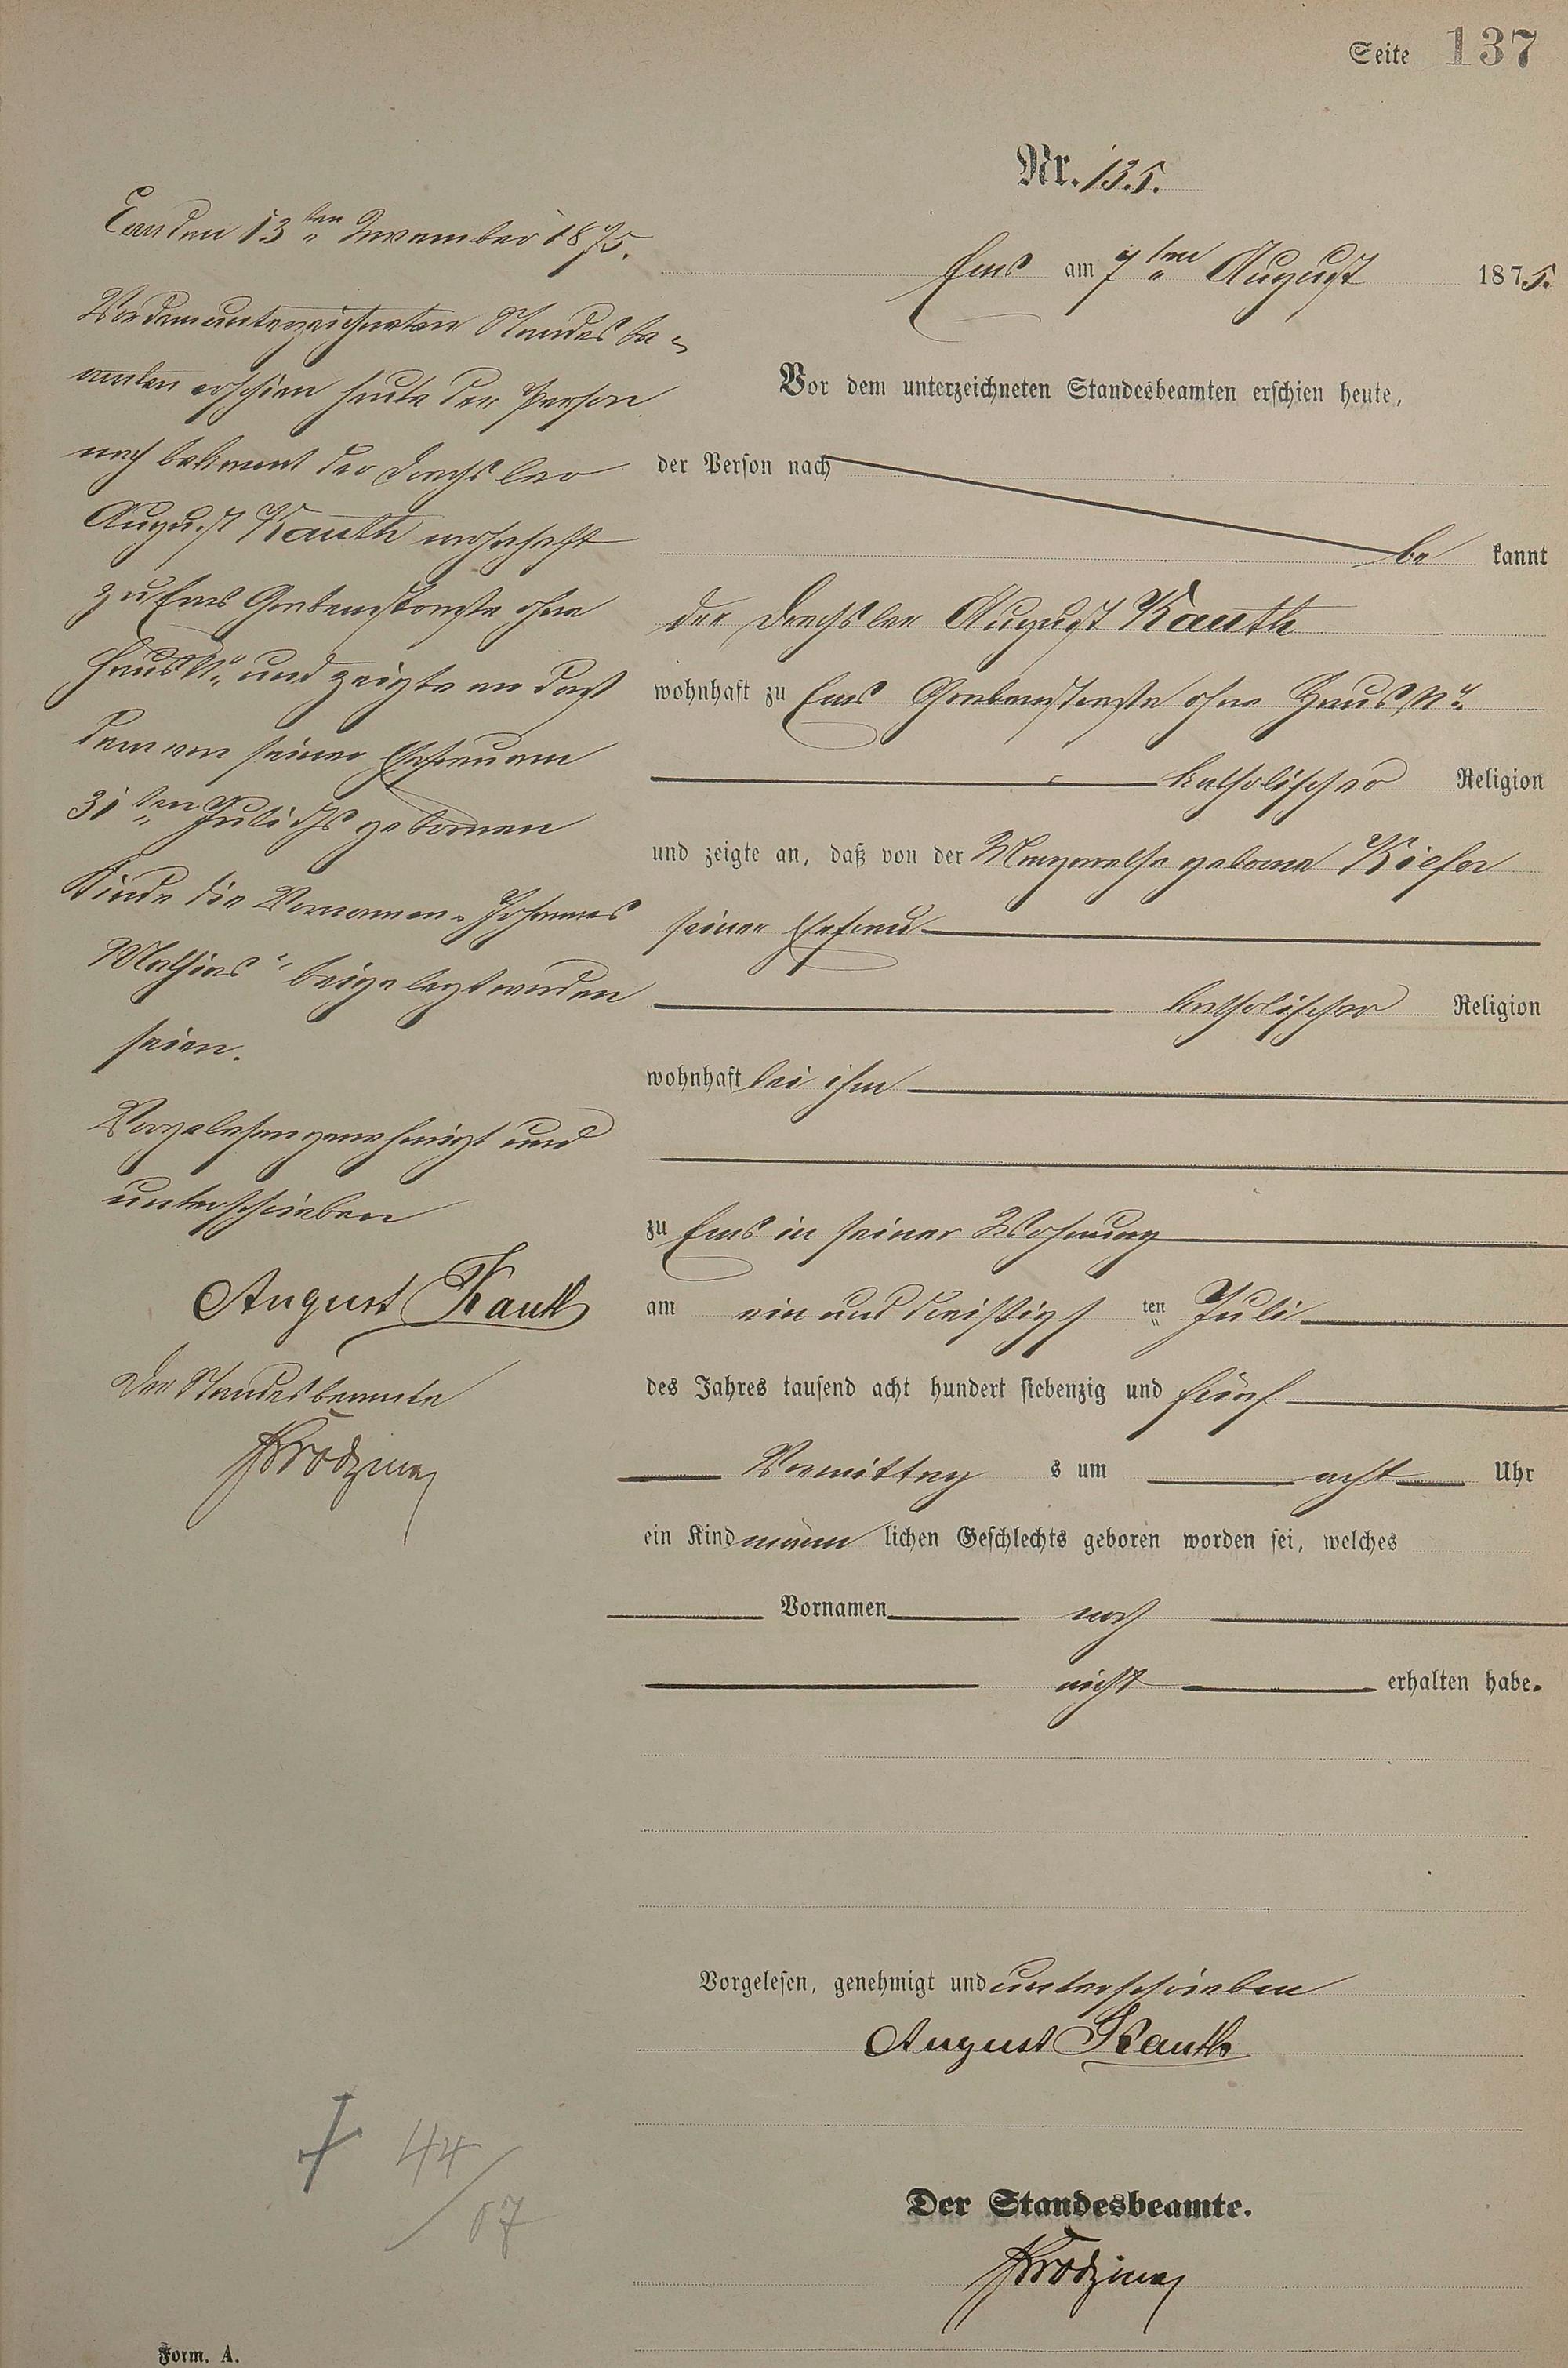 Seite 137
Nr. 135.
Ems am 7ten August 1875.
Vor dem unterzeichneten Standesbeamten erschien heute,
der Person nach
be kannt
der Drechsler August Kauth
wohnhaft zu Ems Grabenstraße ohne Haus No.
katholischer Religion
und zeigte an, daß von der Margarethe geborne Kiefer
seiner Ehefrau
katholischer Religion
wohnhaft bei ihm
zu Ems in seiner Wohnung
am ein und dreißigs ten Juli
des Jahres tausend acht hundert siebenzig und fünf
Vormittag s um acht Uhr
ein Kind männ lichen Geschlechts geboren worden sei, welches
Vornamen noch
nicht erhalten habe.
Vorgelesen, genehmigt und unterschrieben
August Kauth
Der Standesbeamte.
Ems den 13ten November 1875.
Vor dem unterzeichneten Standesbe-
amten erschien heute der Person
nach bekannt der Drechsler
August Kauth wohnhaft
zu Ems Grabenstraße ohne
Haus No. und zeigte an daß
dem von seiner Ehefrau am
31ten Juli d Js geborenen
Kinde die Vornamen „Johannes
Mathias“ beigelegt worden
seien.
Vorgelesen genehmigt und
unterschrieben
August Kauth
Der Standesbeamte
† 44/07
Form. A.